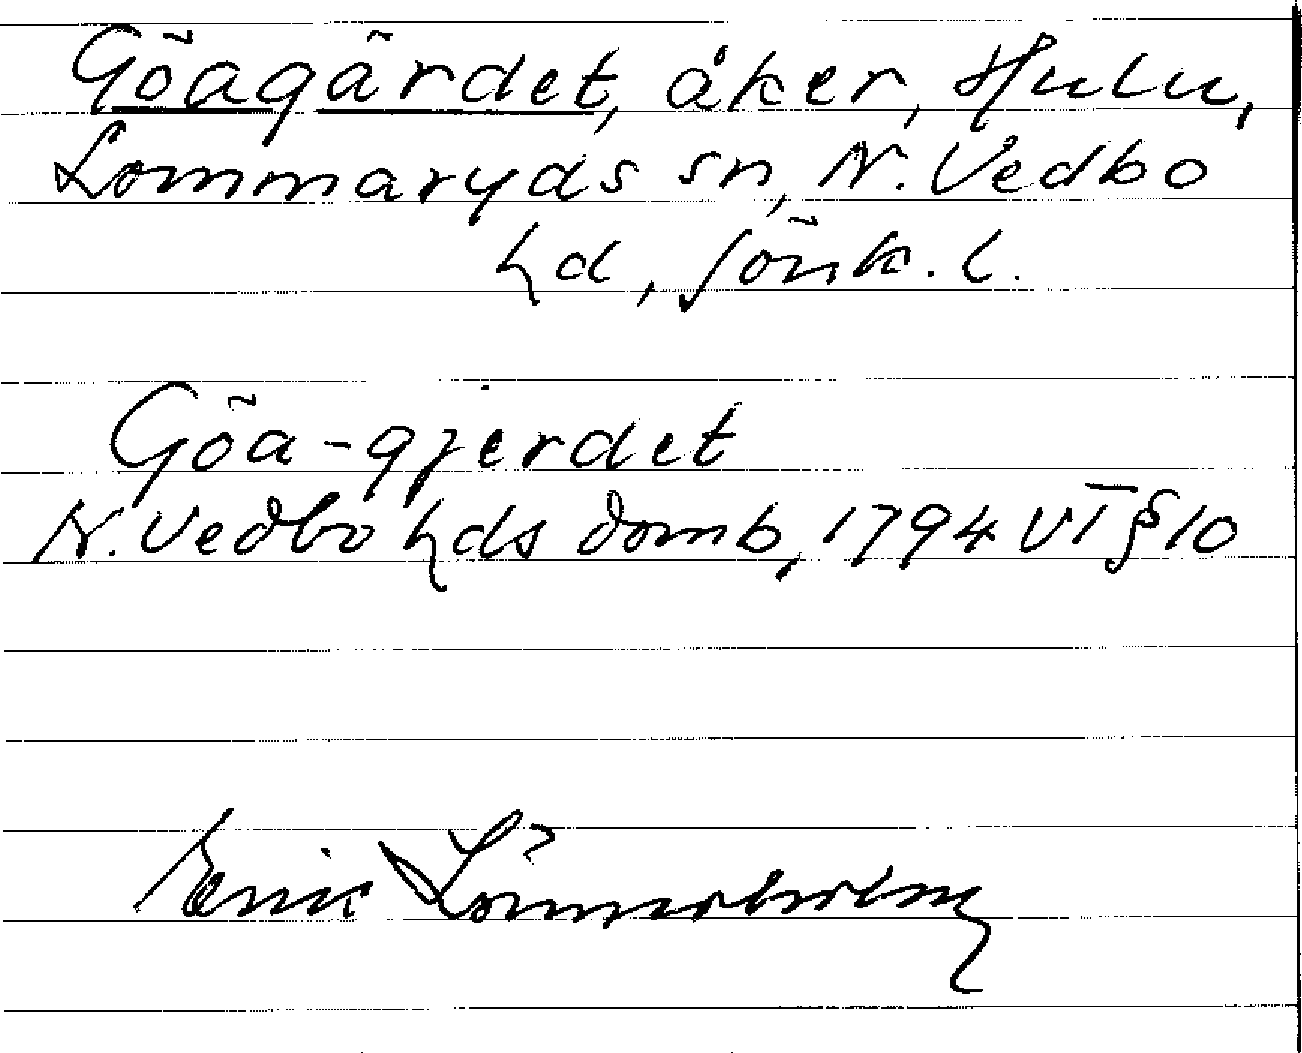 Göagärdet, åker, Hulu,
Lommaryds sn, N. Vedbo
hd, Jönk. l.
Göa-gjerdet
N. Vedbo hds domb, 1794 VT § 10
Eric Lönnerholm